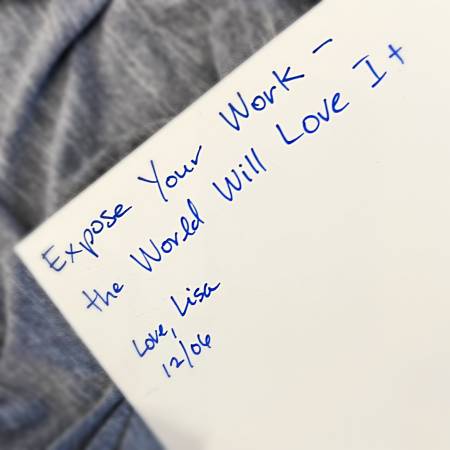 Expose Your Work –
the World Will Love It
Love, Lisa
12/06